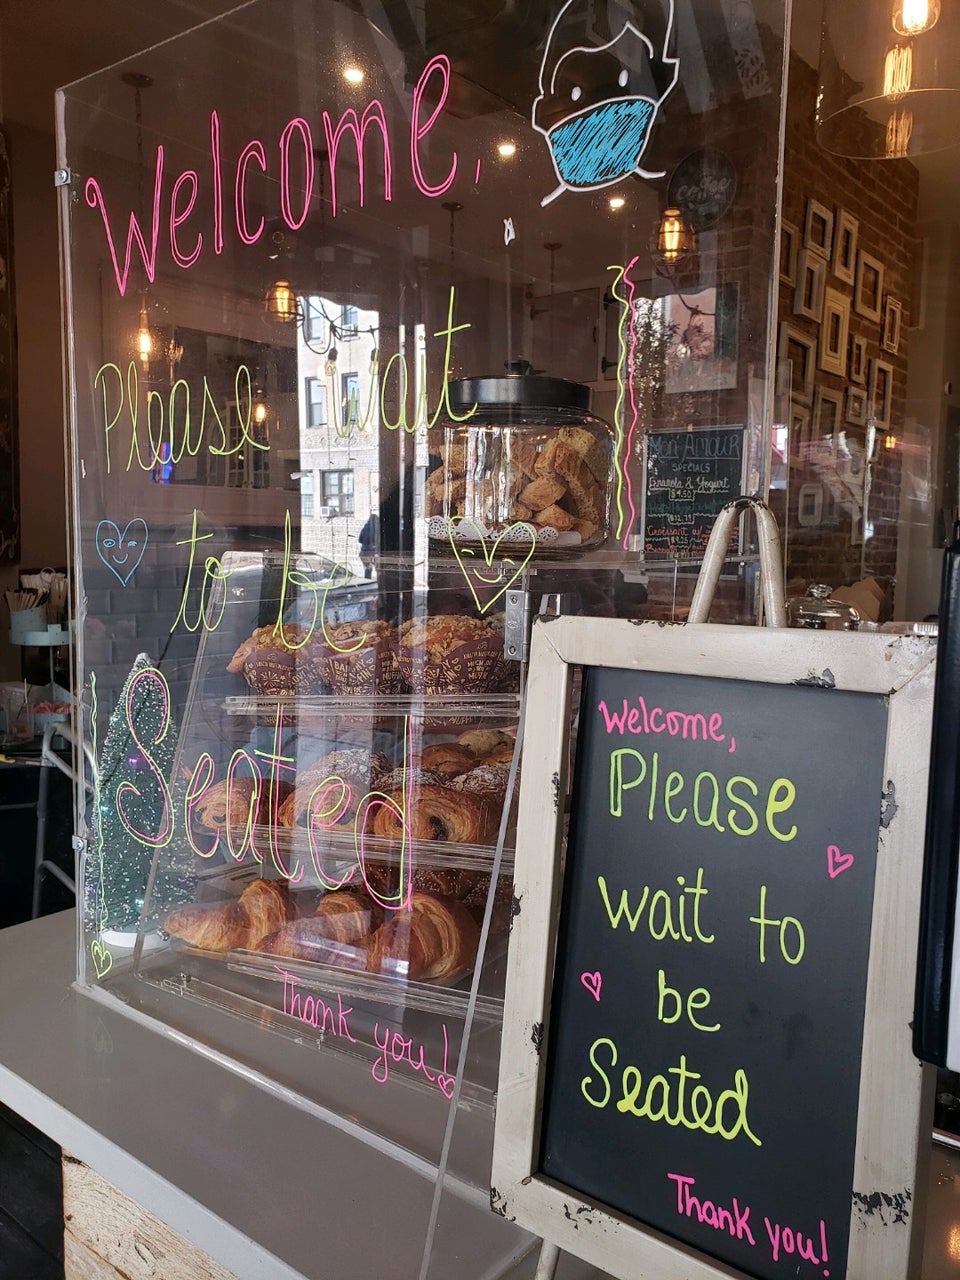 Welcome,
Please wait
to be
Seated
Thank you!
coffee
Mon Amour
SPECIALS
Granola & Yogurt
$4.50
Welcome,
Please
wait to
be
Seated
Thank you!